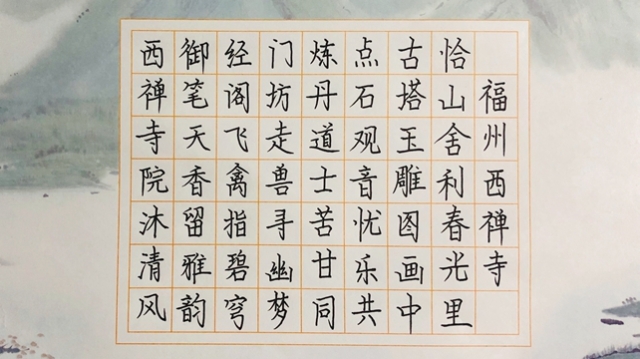 福州西禅寺
恰山舍利春光里
古塔玉雕图画中
点石观音忧乐共
炼丹道士苦甘同
门坊走兽寻幽梦
经阁飞禽指碧穹
御笔天香留雅韵
西禅寺院沐清风